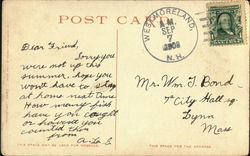 POST CARD
WESTMORELAND,
SEP
7
1908
N.H.
Dear Friend,
Sorry you
were not up this
summer, hope you
wont have to stay
at home next time
How many fish
have you caught
or havent you
counted them
from
Mr. Wm T. Bond
7 City Hall sq.
Lynn
Mass
THIS SPACE FOR THE ADDRESS